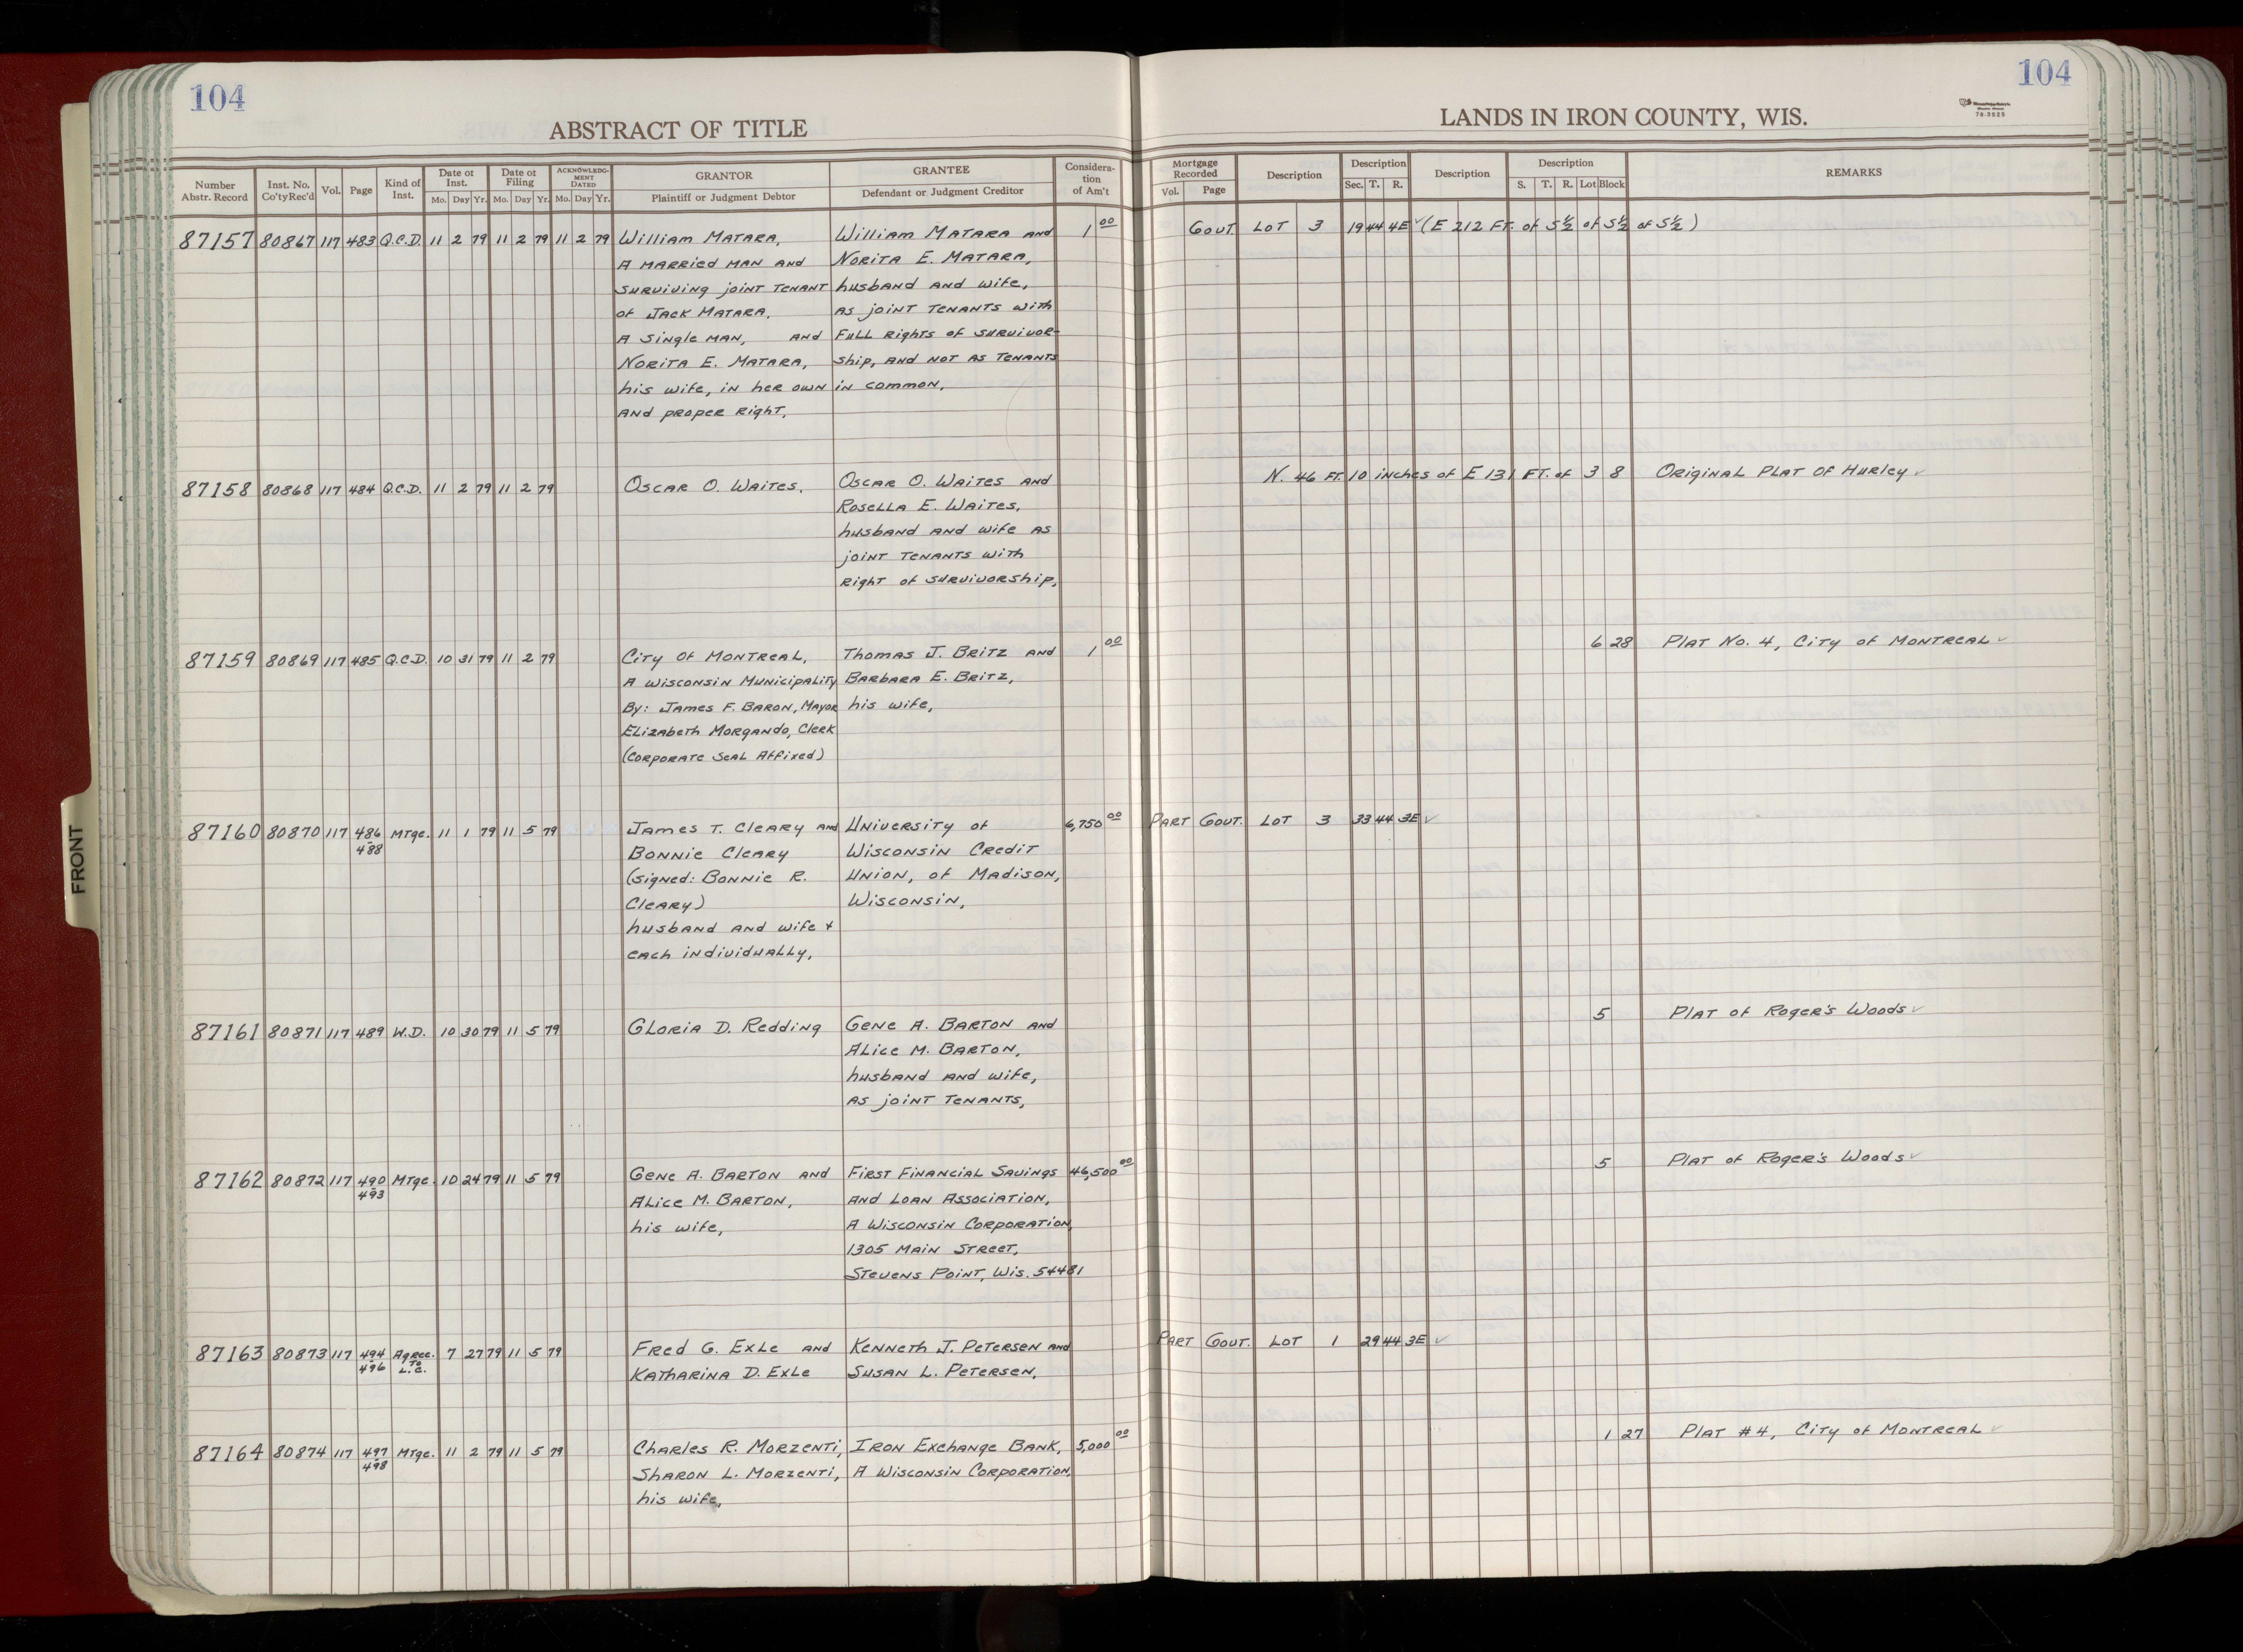 104
104
ABSTRACT OF TITLE
LANDS IN IRON COUNTY, WIS.
79-3525
Number Abstr. Record | Inst. No. Co'ty Rec'd | Vol. | Page | Kind of Inst. | Date of Inst. Mo. Day Yr. | Date of Filing Mo. Day Yr. | ACKNOWLEDGMENT DATED Mo. Day Yr. | GRANTOR Plaintiff or Judgment Debtor | GRANTEE Defendant or Judgment Creditor | Consideration of Am't | Mortgage Recorded Vol. Page | Description | Description Sec. T. R. | Description | Description S. T. R. Lot Block | REMARKS
87157 80867 117 483 Q.C.D. 11 2 79 11 2 79 11 2 79 William Matara, William Matara and 1 00 Gout. Lot 3 19 44 4E ✓ (E 212 FT. of S½ of S½ of S½)
A married man and Norita E. Matara,
surviving joint tenant husband and wife,
of Jack Matara, as joint tenants with
A single man, and full rights of survivor-
Norita E. Matara, ship, and not as tenants
his wife, in her own in common,
and proper right,
87158 80868 117 484 Q.C.D. 11 2 79 11 2 79 Oscar O. Waites, Oscar O. Waites and N. 46 FT. 10 inches of E 131 FT. of 3 8 Original Plat of Hurley ✓
Rosella E. Waites,
husband and wife as
joint tenants with
right of survivorship,
87159 80869 117 485 Q.C.D. 10 31 79 11 2 79 City of Montreal, Thomas J. Britz and 1 00 6 28 Plat No. 4, City of Montreal ✓
A Wisconsin Municipality Barbara E. Britz,
By: James F. Baron, Mayor his wife,
Elizabeth Morgando, Clerk
(Corporate Seal Affixed)
87160 80870 117 486-488 Mtge. 11 1 79 11 5 79 James T. Cleary and University of 6,750 00 Part Gout. Lot 3 33 44 3E ✓
Bonnie Cleary Wisconsin Credit
(signed: Bonnie R. Union, of Madison,
Cleary) Wisconsin,
husband and wife +
each individually,
87161 80871 117 489 W.D. 10 30 79 11 5 79 Gloria D. Redding Gene A. Barton and 5 Plat of Roger's Woods ✓
Alice M. Barton,
husband and wife,
as joint tenants,
87162 80872 117 490-493 Mtge. 10 24 79 11 5 79 Gene A. Barton and First Financial Savings 46,500 00 5 Plat of Roger's Woods ✓
Alice M. Barton, and Loan Association,
his wife, A Wisconsin Corporation,
1305 Main Street,
Stevens Point, Wis. 54481
87163 80873 117 494-496 Agree. To L.C. 7 27 79 11 5 79 Fred G. Exle and Kenneth J. Petersen and Part Gout. Lot 1 29 44 3E ✓
Katharina D. Exle Susan L. Petersen,
87164 80874 117 497-498 Mtge. 11 2 79 11 5 79 Charles R. Morzenti, Iron Exchange Bank, 5,000 00 1 27 Plat #4, City of Montreal ✓
Sharon L. Morzenti, A Wisconsin Corporation,
his wife,
FRONT